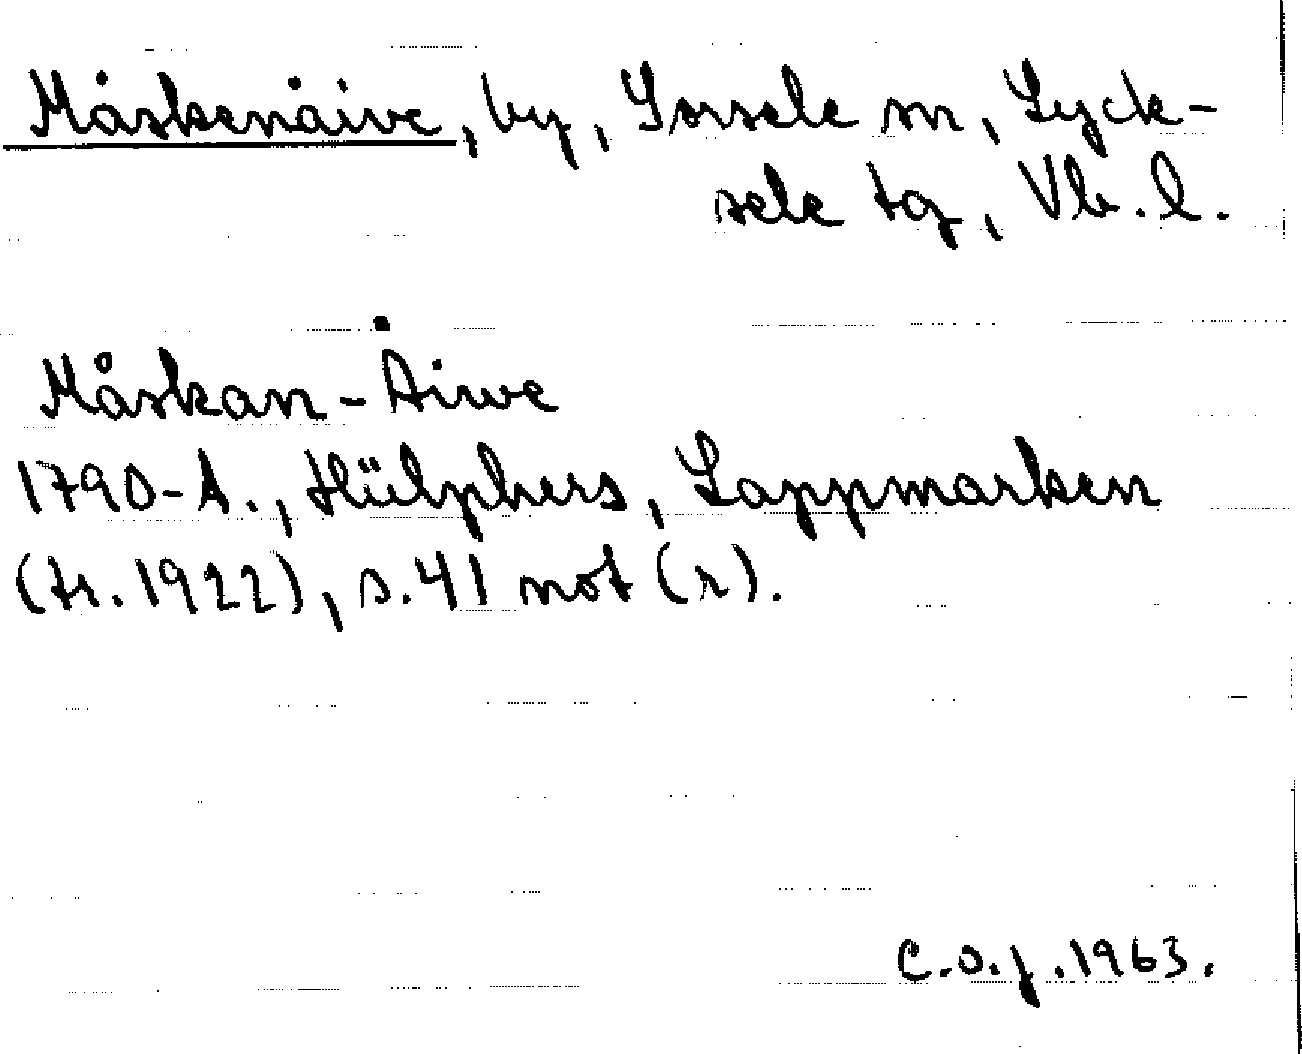 Måskenåive, by, Sorsele sn, Lyck-
sele tg, Vb. l.
Måskan-Åiwe
1790-t., Hülphers, Lappmarken
(tr. 1922), s. 41 not (r).
C. O. J. 1963.